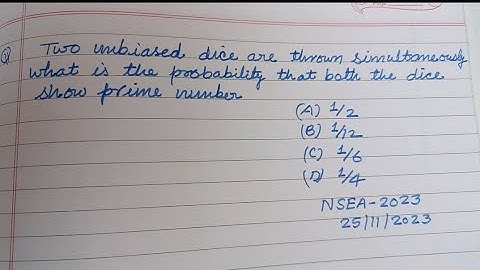 Q) Two unbiased dice are thrown simultaneously
what is the probability that both the dice
show prime number
(A) 1/2
(B) 1/12
(C) 1/6
(D) 1/4
NSEA-2023
25/11/2023